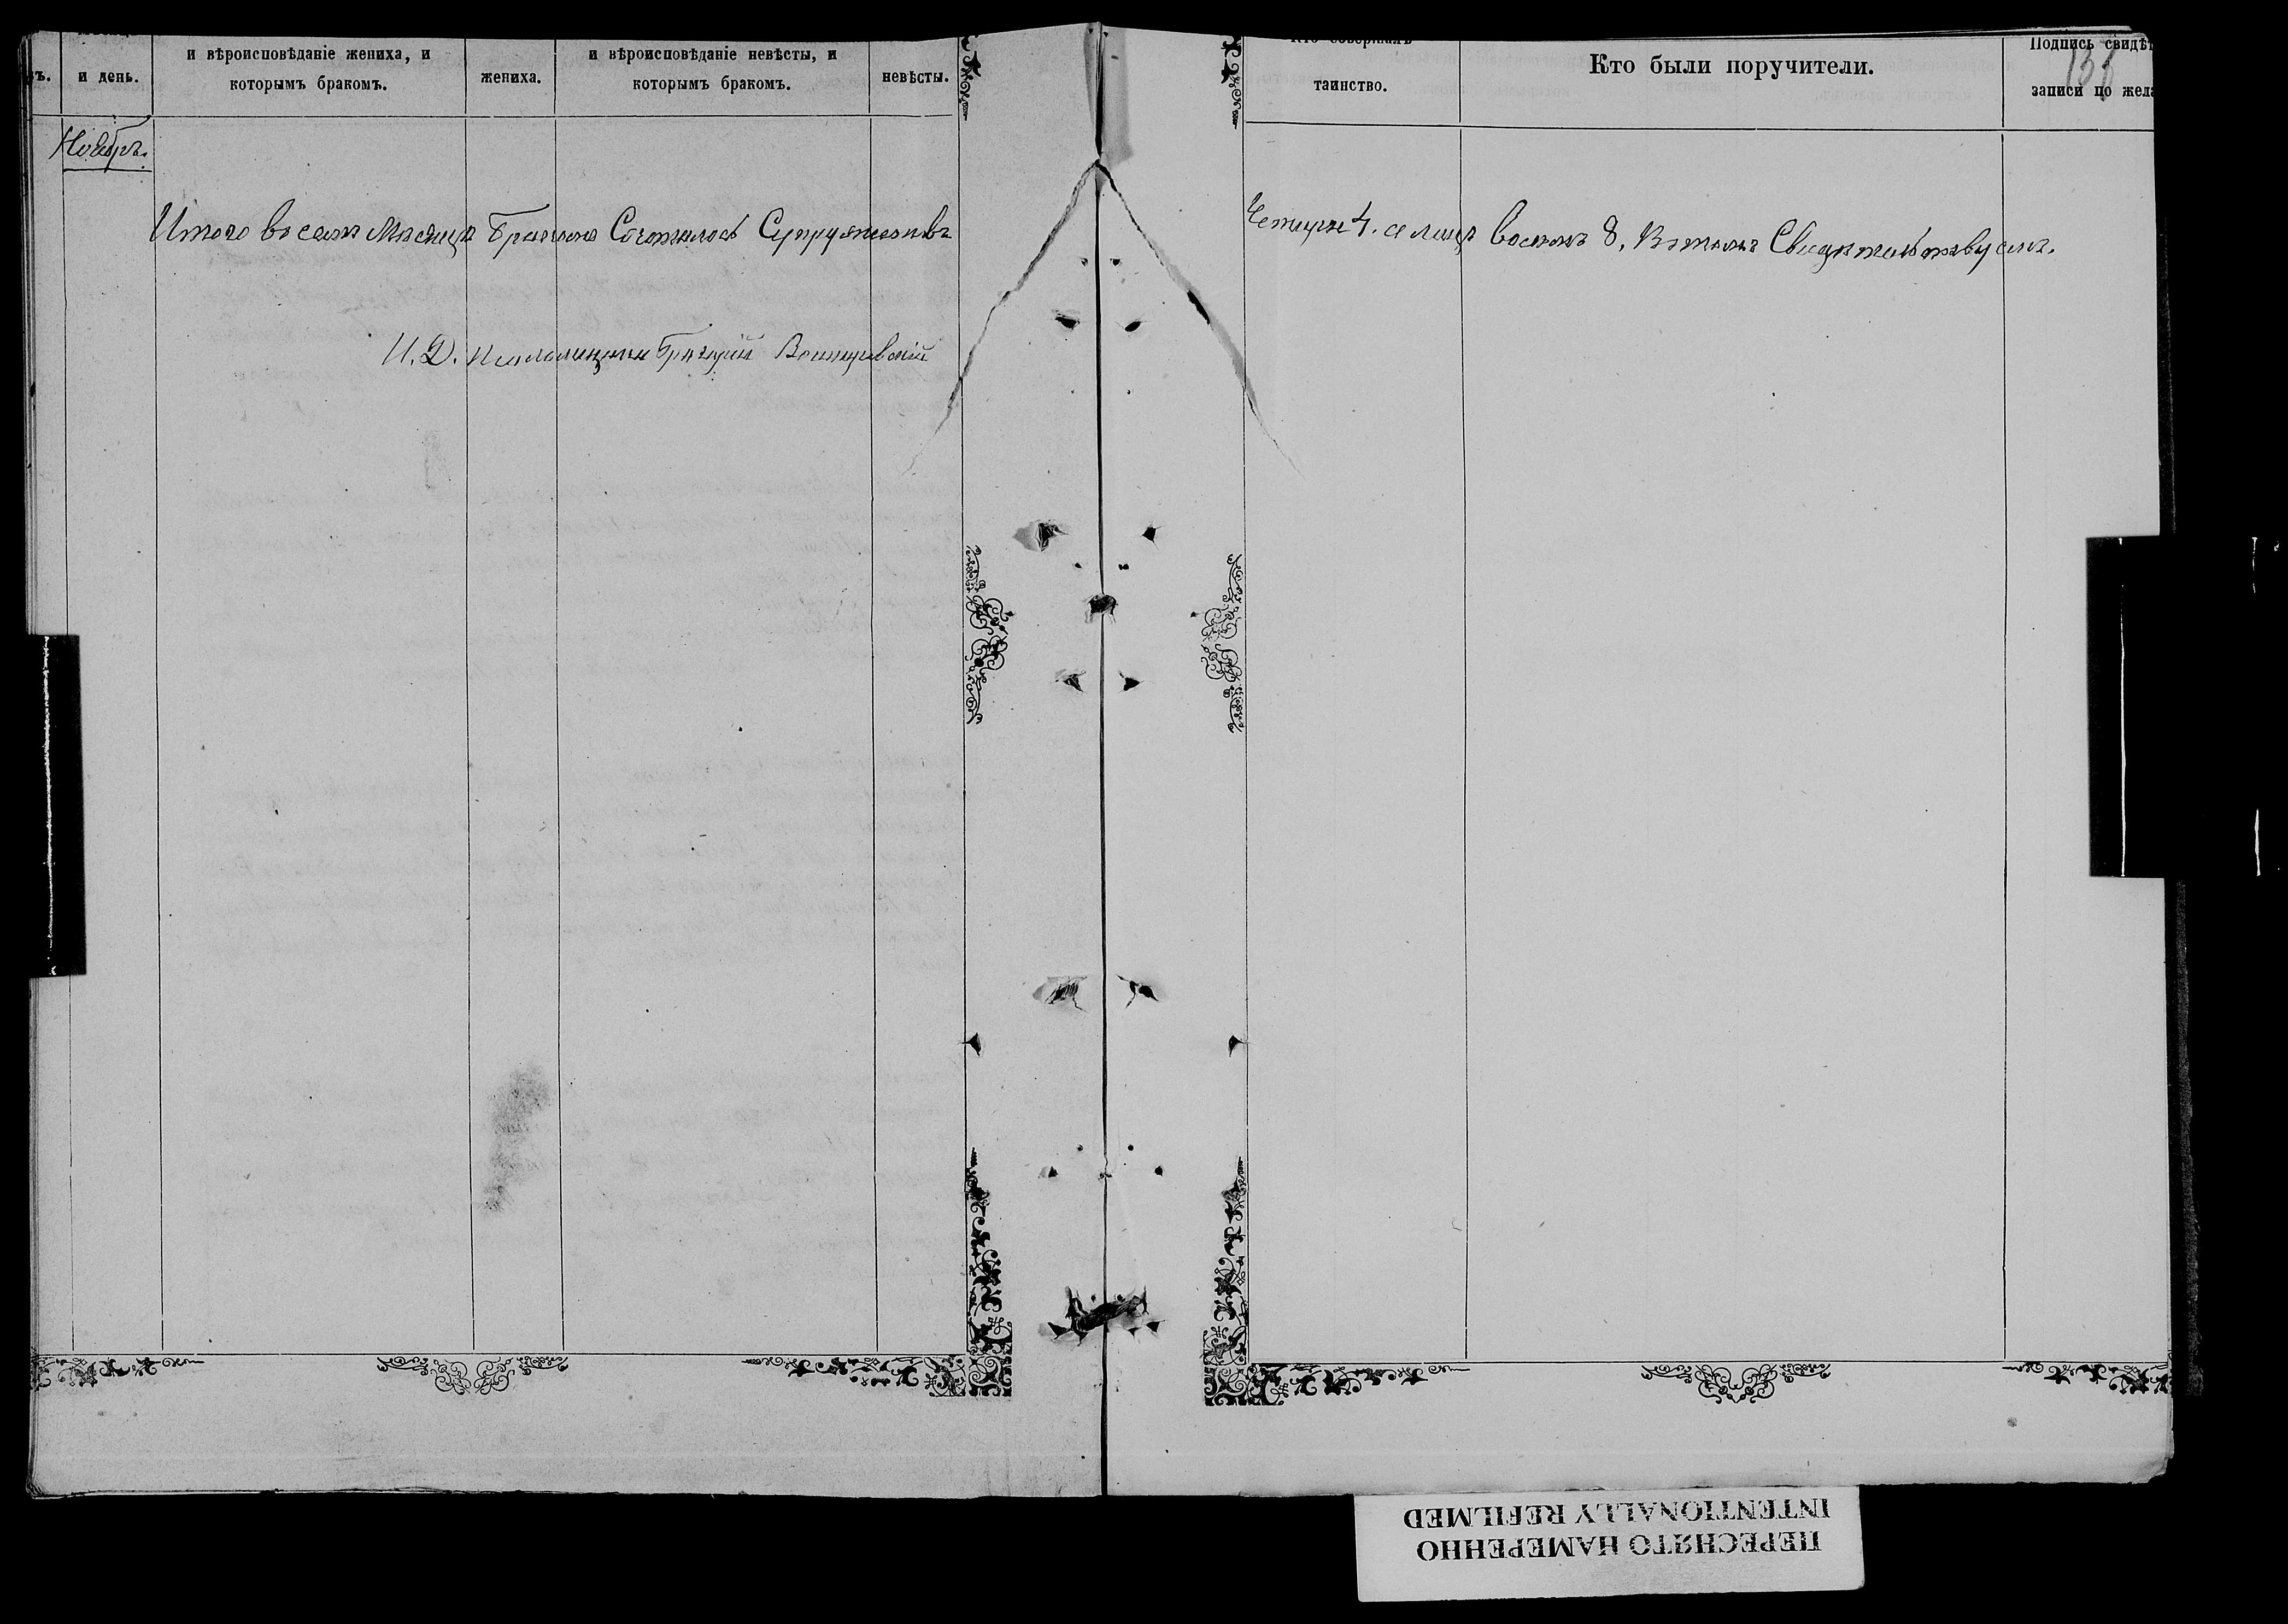 въ.
и день.
и вѣроисповѣданіе жениха, и
которымъ бракомъ.
жениха.
и вѣроисповѣданіе невѣсты, и
которымъ бракомъ.
невѣсты.
Кто совершалъ
таинство.
Кто были поручители.
Подпись свидѣт
записи по жела
Ноябрь.
Итого въ семъ Мѣсяцѣ Бракомъ Сочеталось Супружествъ Четыре 4. а лицъ восемь 8, В томъ Свидѣтельствуемъ.
И. Д. Псаломщика Григорій
ПЕРЕСНЯТО НАМЕРЕННО
INTENTIONALLY REFILMED